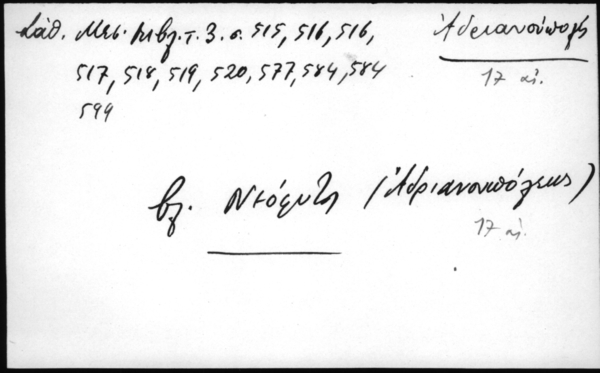 Σάθ. Μεσ. Βιβλ. τ. 3. σ. 515, 516, 516,
517, 518, 519, 520, 577, 584, 584
599
Ἀδριανούπολις
17 αἰ.
βλ. Νεόφυτος (Ἀδριανουπόλεως)
17 αἰ.